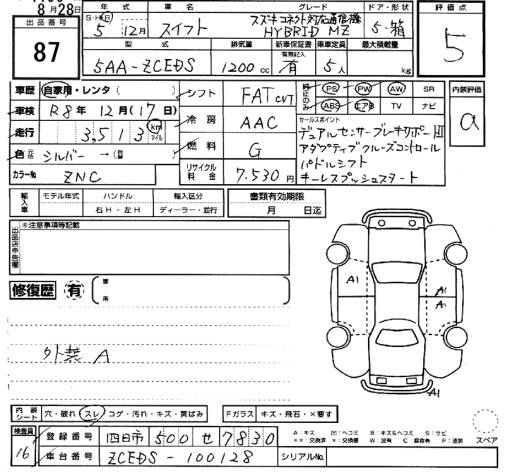 8月28日
出品番号
87
年式 車名 グレード ドア・形状
S・H・R 5年 12月 スイフト スズキコネクト対応通信機 HYBRID MZ 5・箱
型式 排気量 新車保証書 乗車定員 最大積載量
有無記入
5AA-ZCEDS 1200cc 有 5人 kg
評価点
5
車歴 自家用・レンタ( )
車検 R8年 12月(17日)
走行 3,513 km マイル
色 元色 シルバー →(替 )
カラーNo. ZNC
シフト FAT CVT
冷房 AAC
燃料 G
リサイクル料金 7,530円
純正のみ
PS PW AW SR
ABS エアB TV ナビ
セールスポイント
デュアルセンサーブレーキサポートⅡ
アダプティブクルーズコントロール
パドルシフト
キーレスプッシュスタート
内装評価
a
輸入車 モデル年式 ハンドル 輸入区分
右H・左H ディーラー・並行
書類有効期限
月 日迄
出品店申告欄
※注意事項等記載
修復歴 有 箇所
A1
A1
A1
A1
外装 A
内装シート 穴・破れ スレ コゲ・汚れ・キズ・黄ばみ
Fガラス キズ・飛石・×要す
A:キズ U:ヘコミ B:キズ&ヘコミ S:サビ
××:交換済 ×:交換要 W:波有 C:腐食有 P:塗装
スペア
検査員
16
登録番号 四日市 500 せ 7830
車台番号 ZCEDS-100128
シリアルNo.